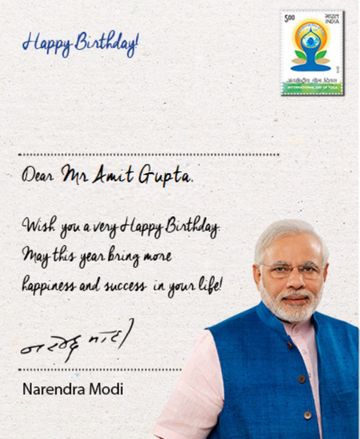 Happy Birthday!
5.00 भारत
INDIA
अंतर्राष्ट्रीय योग दिवस
INTERNATIONAL DAY OF YOGA
Dear Mr Amit Gupta.
Wish you a very Happy Birthday.
May this year bring more
happiness and success in your life!
नरेन्द्र मोदी
Narendra Modi